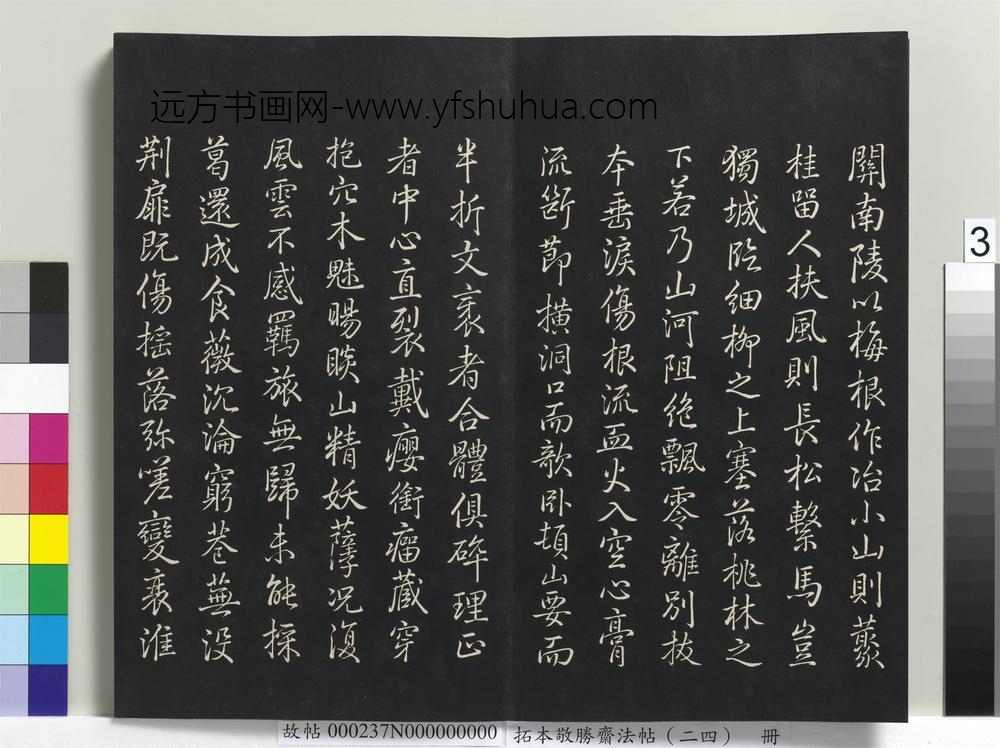 远方书画网-www.yfshuhua.com
關南陵以梅根作冶小山則藂
桂留人扶風則長松繫馬豈
獨城臨細柳之上塞落桃林之
下若乃山河阻絶飄零離別拔
本垂淚傷根流血火入空心膏
流斷節橫洞口而欹卧頓山要而
半折文衺者合體俱碎理正
者中心直裂戴癭銜瘤藏穿
抱穴木魅睗睒山精妖孽况復
風雲不感羈旅無歸未能採
葛還成食薇沉淪窮巷蕪没
荆扉既傷搖落弥嗟變衰淮
3
故帖 000237N000000000
拓本敬勝齋法帖（二四） 冊